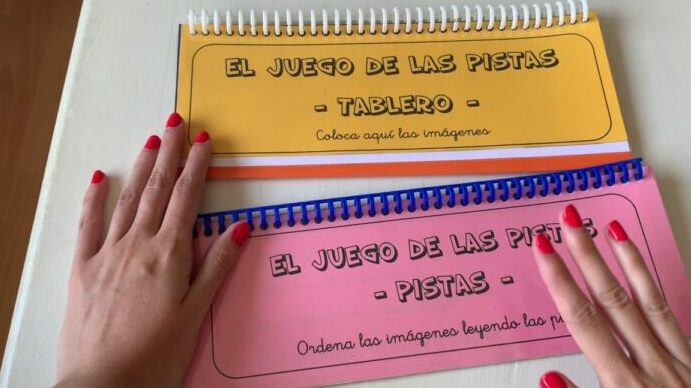 EL JUEGO DE LAS PISTAS
- TABLERO -
Coloca aquí las imágenes
EL JUEGO DE LAS PISTAS
- PISTAS -
Ordena las imágenes leyendo las